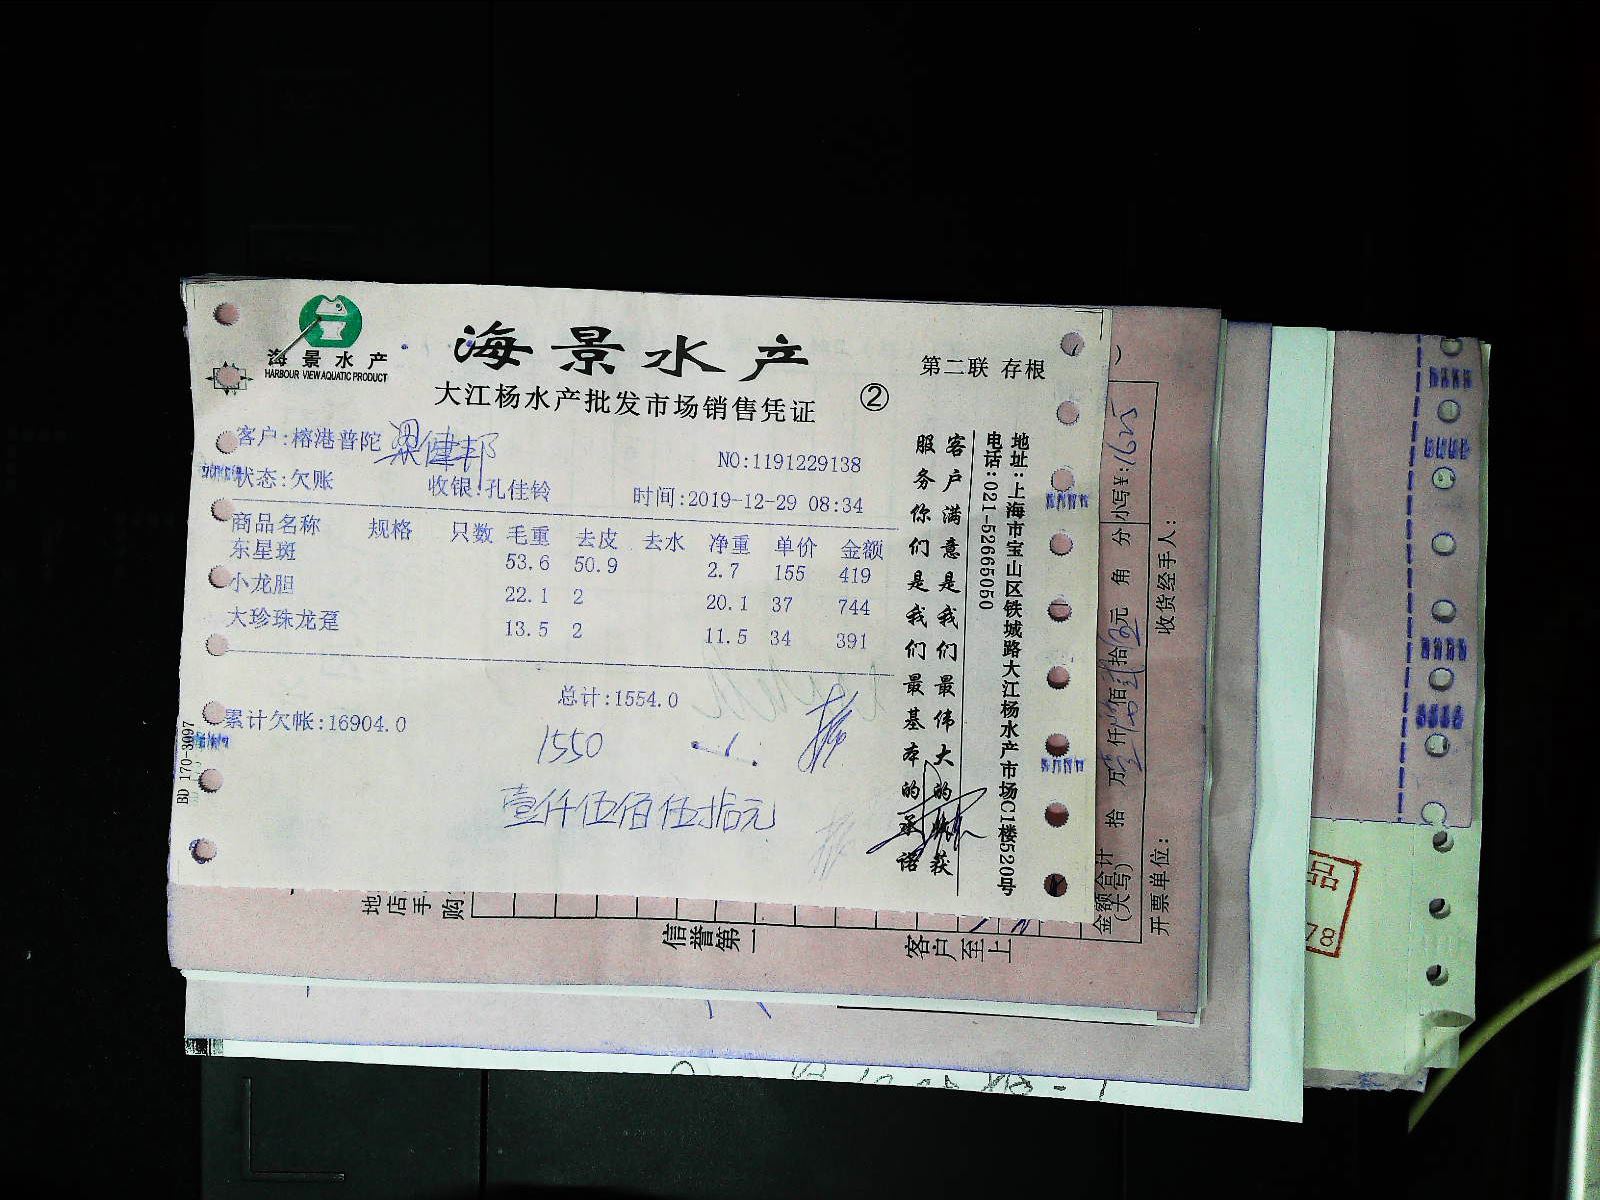 海景水产
HARBOUR VIEW AQUATIC PRODUCT
海景水产
大江杨水产批发市场销售凭证
②
第二联 存根
客户:榕港普陀 梁健邦
NO:1191229138
状态:欠账 收银:孔佳铃 时间:2019-12-29 08:34
商品名称 规格 只数 毛重 去皮 去水 净重 单价 金额
东星斑 53.6 50.9 2.7 155 419
小龙胆 22.1 2 20.1 37 744
大珍珠龙趸 13.5 2 11.5 34 391
总计:1554.0
累计欠帐:16904.0
1550
壹仟伍佰伍拾元
BD 170-3097
客户满意是我们最伟大的收获
服务你们是我们最基本的承诺
地址:上海市宝山区铁城路大江杨水产市场C1楼520号
电话:021-52665050
小写¥:1625
金额合计
(大写)
拾 万 仟 佰 拾 元 角 分
收货经手人:
开票单位:
地
店
手
购
信誉第一
客户至上
品
78